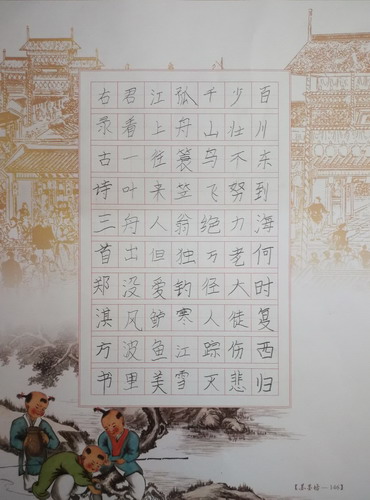 百川东到海何时复西归
少壮不努力老大徒伤悲
千山鸟飞绝万径人踪灭
孤舟蓑笠翁独钓寒江雪
江上往来人但爱鲈鱼美
君看一叶舟出没风波里
右录古诗三首郑淇方书